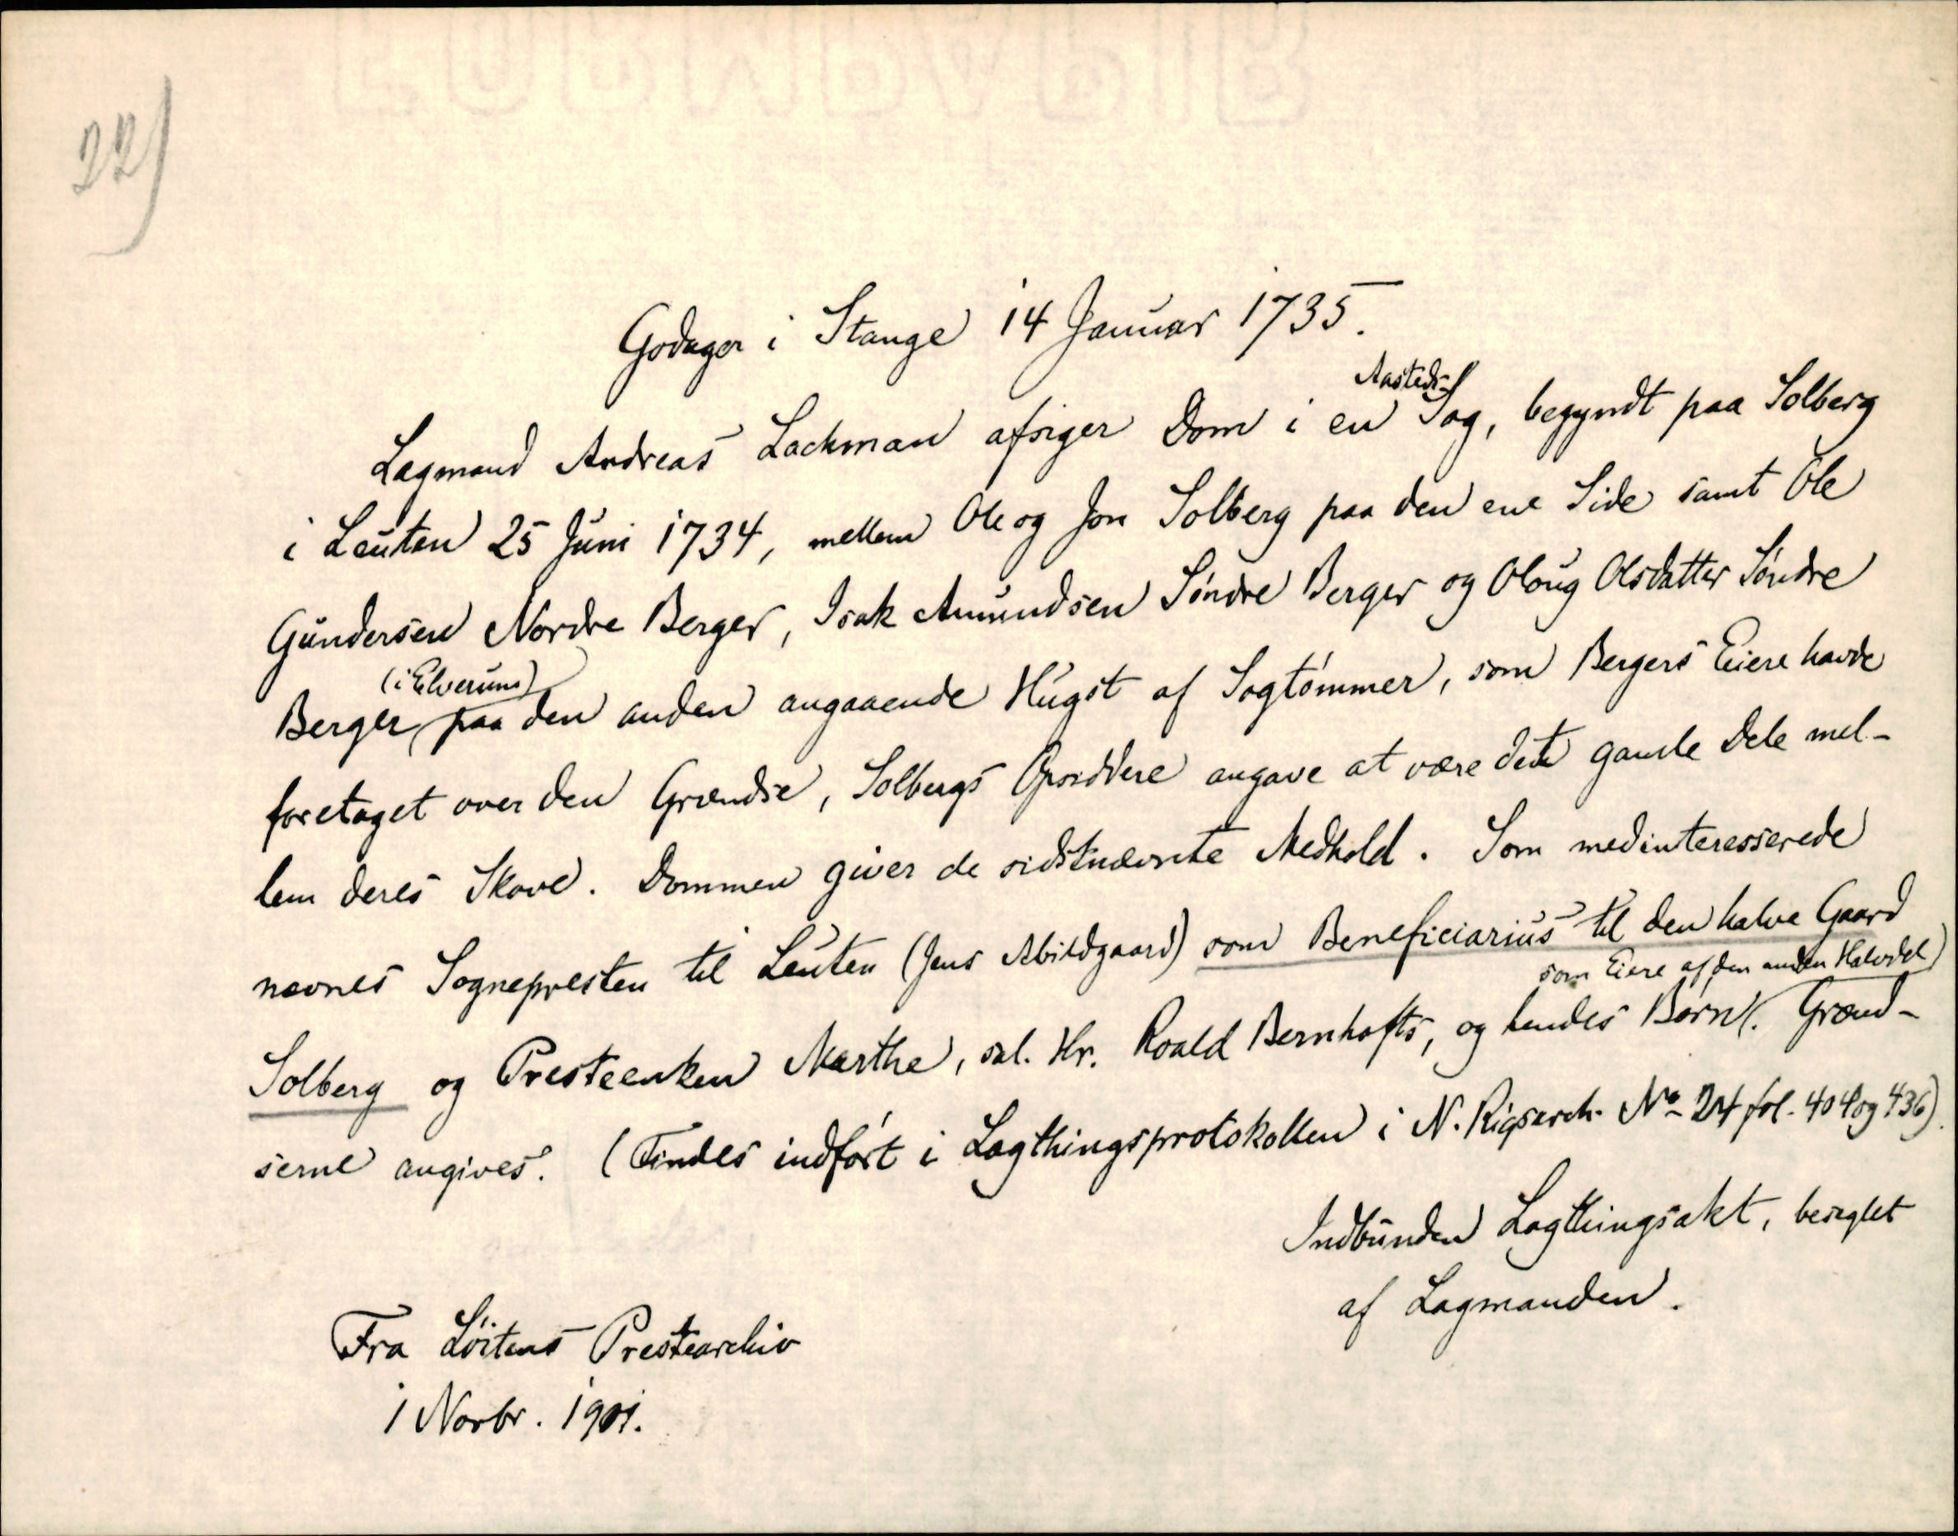 22)
Godager i Stange 14 Januar 1735.
Lagmand Andreas Lachman afsiger Dom i en Aasteds-Sag, begyndt paa Solberg
i Leuten 25 Juni 1734, mellem Ole og Jon Solberg paa den ene Side samt Ole
Gundersen Nordre Berger, Isak Amundsen Söndre Berger og Oloug Olsdatter Söndre
Berger (i Elverum) paa den anden angaaende Hugst af Sagtömmer, som Bergers Eiere havde
foretaget over den Grændse, Solbergs Opsiddere angave at være det gamle Dele mel-
lem deres Skove. Dommen giver de sidstnævnte Medhold. Som medinteresserede
nævnes Sognepresten til Leuten (Jens Abildgaard) som Beneficiarius til den halve Gaard
Solberg og Presteenken Marthe, sal. Hr. Roald Bernhofts, og hendes Börn som Eiere af den anden Halvdel. Grænd-
serne angives. (Findes indfört i Lagthingsprotokollen i N. Rigsarch. No 24 fol. 404 og 436).
Indbunden Lagthingsakt, beseglet
af Lagmanden.
Fra Löitens Prestearchiv
1 Novbr. 1901.